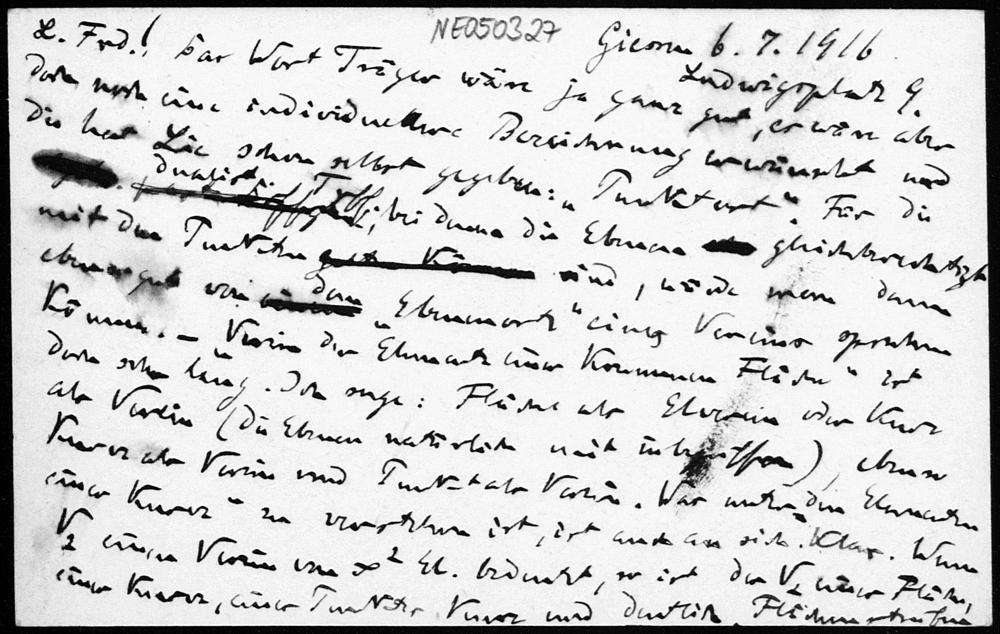 NE050327
L. Frd.! Das Wort Träger wäre ja ganz gut, es wäre aber
Giessen 6. 7. 1916
Ludwigsplatz 9.
doch noch eine individuellere Bezeichnung erwünscht und
die hat Lie schon selbst gegeben: „Punktort“. Für die
dualist. Auff., bei denen die Ebenen gleichberechtigt
mit den Punkten sind, würde man dann
ebenso gut von dem „Ebenenort“ eines Vereins sprechen
können. – Verein der Elemente einer krummen Fläche“ ist
doch sehr lang. Ich sage: Fläche als Elverein oder kurz
als Verein (die Ebenen natürlich mit inbegriffen), ebenso
Kurve als Verein und Punkt als Verein. Was unter „den Elementen
einer Kurve“ zu verstehen ist, ist auch an sich klar. Wenn
V₂ einen Verein von ∞² El. bedeutet, so ist der V₂ einer Fläche,
einer Kurve, eines Punktes kurz und deutlich. Flächenstreifen